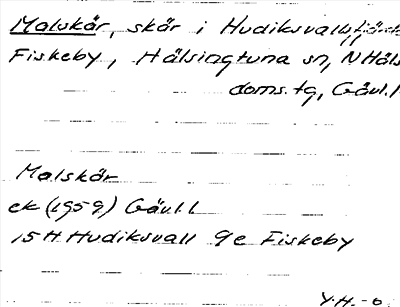 Malskär, skär i Hudiksvallsfjärde
Fiskeby, Hälsingtuna sn, N Häls
doms.tg, Gävl.l
Malskär
ek (1959) Gävl.l
15H Hudiksvall 9e Fiskeby
Y.H.-0